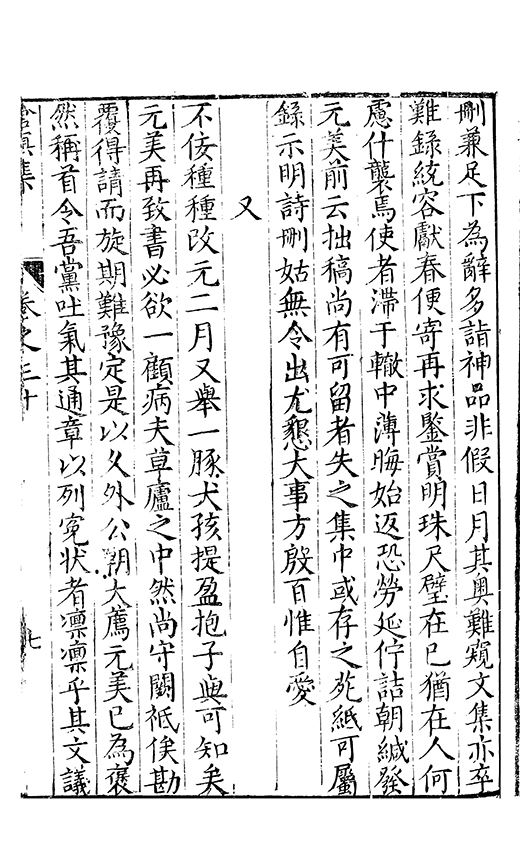 刪兼足下為辭多詣神品非假日月其奧難窺文集亦卒
難錄統容獻春便寄再求鑒賞明珠尺璧在已猶在人何
慮什襲焉使者滯于轍中薄晦始返恐勞延佇詰朝緘發
元美前云拙稿尚有可留者失之集中或存之苑紙可屬
錄示明詩刪姑無令出尤懇大事方殷百惟自愛
又
不佞種種改元二月又舉一豚犬孩提盈抱子與可知矣
元美再致書必欲一顧病夫草廬之中然尚守關祗俟勘
覆得請而旋期難豫定是以久外公朝大薦元美已為褒
然稱首令吾黨吐氣其通章以列冤狀者凛凛乎其文議
集 卷之三十 七